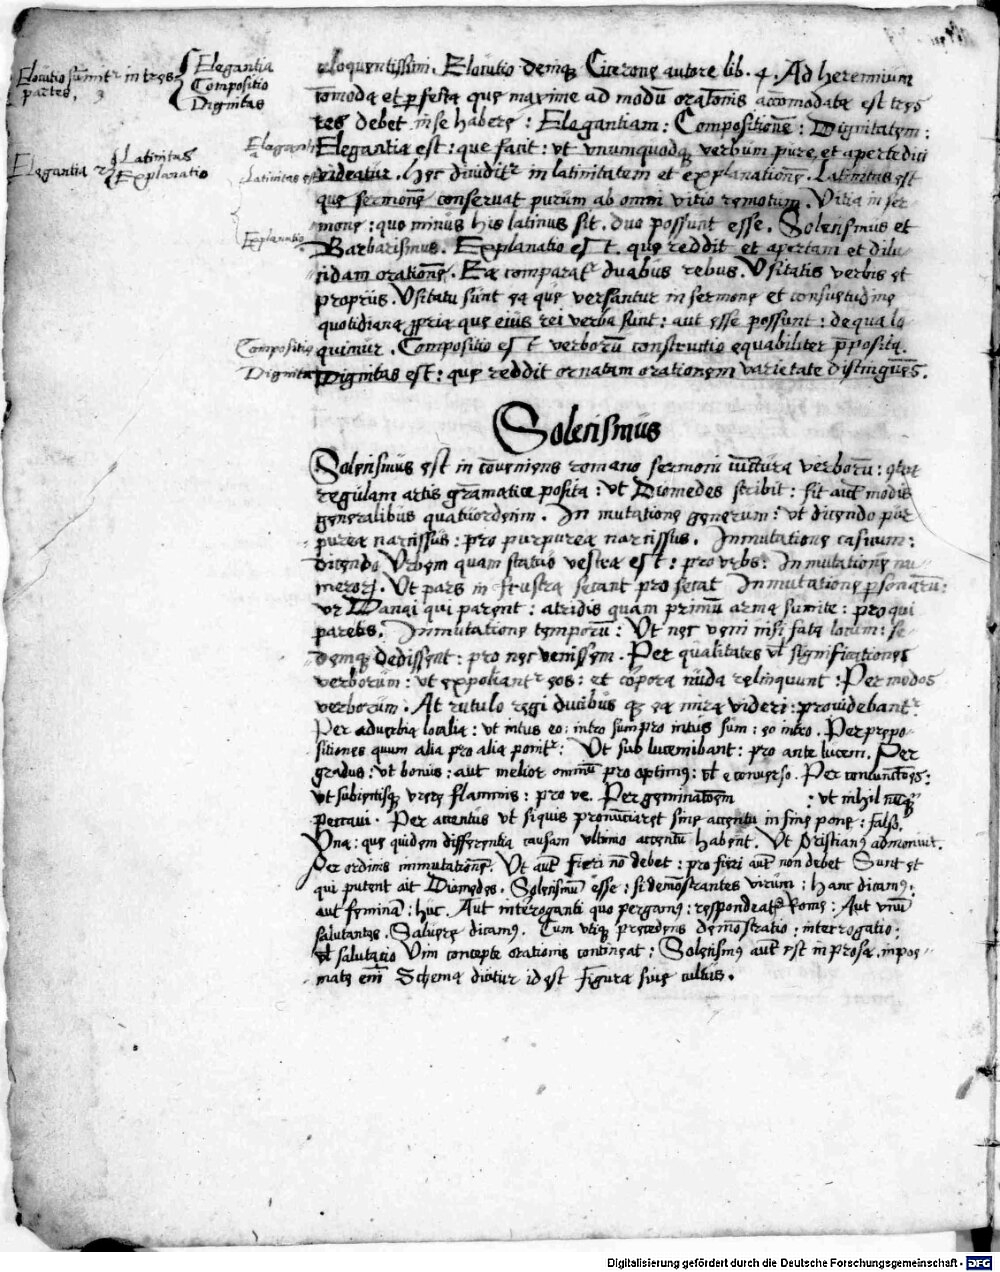 Elocutio sumitr in tres
partes, 3
Elegantia
Compositio
Dignitas
Elegantia 2
Latinitas
Explanatio
eloquentissim. Elocutio demq Cicerone autore lib. 4. Ad herennium
comoda et pfecta que maxime ad modũ oratonis accomodata est tres
res debet in se habere : Elegantiam : Compositionẽ : Dignitatem :
Elegantia
Elegantia est : que facit : ut unumquodq verbum pure, et aperte dici
Latinitas est
videatur. Hec dividitr in latinitatem et explanationẽ. Latinitas est
que sermonẽ conservat purum ab omni vitio remotum. Vitia in ser-
mone : quo minus his latinus sit. duo possunt esse. Solecismus et
Explanatio
Barbarismus. Explanatio est. que reddit et apertam et dilu-
cidam orationẽ. Ea comparatr duabus rebus. Usitatis verbis et
propriis. Usitata sunt ea que versantur in sermone et consuetudine
quotidiana ppria que eius rei verba sunt : aut esse possunt : de qua lo
Compositio
quimur. Compositio est verborũ constructio equabiliter pposita.
Dignitas
Dignitas est : que reddit ornatam orationem varietate distinguẽs.
Solecismus
Solecismus est in cõveniens romano sermoni iunctura verborũ : qtra
regulam artis gramatice posita : ut Diomedes scribit : fit aut modis
generalibus quatuordecim. In mutatione generum : ut dicendo pur
purea narcissus : pro purpurea narcissus. Inmutatione casuum :
dicendo Urbem quam statuo vestra est : pro urbs. In mutationẽ nu
meror. Ut pars in frustra secant pro secat Inmutatione psonarũ :
ut Danai qui parent : atridis quam primũ arma sumite : pro qui
paretis. Inmutatione temporũ : Ut nec veni nisi fata locum : se-
demq dedissent : pro nec venissem. Per qualitates vl significationes
verborum : ut expoliantr eos : et corpora nuda relinquunt : Per modos
verborum. At rutulo regi ducibus q ea mira videri : providebantr
Per adverbia localia : ut intus eo : intro sum pro intus sum : eo intro. Per prepo-
sitiones quum alia pro alia ponitr : Ut sub lucem ibant : pro ante lucem. Per
gradus : ut bonus : aut melior omniũ pro optimus : vl e converso. Per coniunctões :
ut subiectisq urere flammis : pro ve. Per geminatõem : ut nihil nuq
peccavi. Per accentus ut siquis pronunciaret sine accentu in fine pone : falso,
Una : que quidem differentia causam ultimo accentũ habent. Ut Priscianus admonuit.
Per ordinis inmutationẽ. Ut aut fieri nõ debet : pro fieri aut non debet Sunt et
qui putent ait Diomedes. Solecismũ esse : si demõstrantes virum : hanc dicamus.
aut feminã : huc. Aut interoganti quo pergamus : respondeatr Rome : Aut unũ
salutantes. Salvere dicamus. Cum utiq precedens demõstratio : interrogatio :
vl salutatio Vim concepte orationis contineat : Solecismus aut est in prosa. in poe-
mate em Schema dicitur id est figura sive cultus.
Digitalisierung gefördert durch die Deutsche Forschungsgemeinschaft - DFG